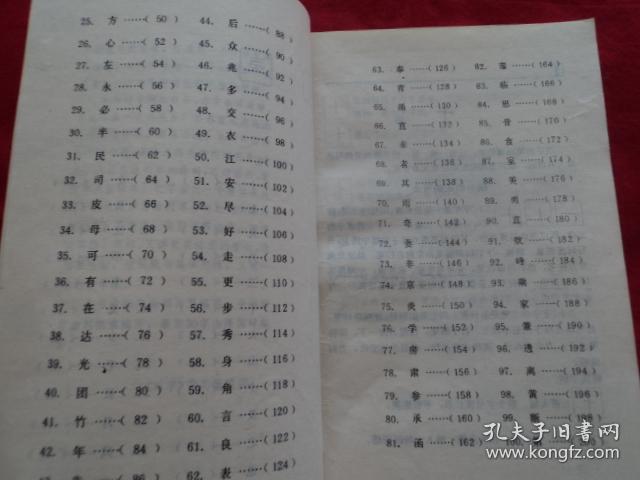 25. 方 ……( 50 )
26. 心 ……( 52 )
27. 左 ……( 54 )
28. 永 ……( 56 )
29. 必 ……( 58 )
30. 半 ……( 60 )
31. 民 ……( 62 )
32. 司 ……( 64 )
33. 皮 ……( 66 )
34. 母 ……( 68 )
35. 可 ……( 70 )
36. 有 ……( 72 )
37. 在 ……( 74 )
38. 达 ……( 76 )
39. 光 ……( 78 )
40. 团 ……( 80 )
41. 竹 ……( 82 )
42. 年 ……( 84 )
( 86 )
44. 后 ……( 88 )
45. 众 ……( 90 )
46. 兆 ……( 92 )
47. 多 ……( 94 )
48. 交 ……( 96 )
49. 衣 ……( 98 )
50. 江 ……( 100 )
51. 安 ……( 102 )
52. 尽 ……( 104 )
53. 好 ……( 106 )
54. 走 ……( 108 )
55. 更 ……( 110 )
56. 步 ……( 112 )
57. 秀 ……( 114 )
58. 身 ……( 116 )
59. 角 ……( 118 )
60. 言 ……( 120 )
61. 良 ……( 122 )
62. 表 ……( 124 )
63. 奉 ……( 126 )
64. 青 ……( 128 )
65. ……( 130 )
66. 直 ……( 132 )
67. ……( 134 )
68. 名 ……( 136 )
69. 其 ……( 138 )
70. 雨 ……( 140 )
71. 奇 ……( 142 )
72. ……( 144 )
73. 非 ……( 146 )
74. 京 ……( 148 )
75. 炎 ……( 150 )
76. 学 ……( 152 )
77. 房 ……( 154 )
78. 肃 ……( 156 )
79. 参 ……( 158 )
80. 承 ……( 160 )
81. 函 ……( 162 )
82. ……( 164 )
83. 临 ……( 166 )
84. 思 ……( 168 )
85. 骨 ……( 170 )
86. 食 ……( 172 )
87. 室 ……( 174 )
88. 美 ……( 176 )
89. 勇 ……( 178 )
90. ……( 180 )
91. ……( 182 )
92. 峰 ……( 184 )
93. 乘 ……( 186 )
94. 家 ……( 188 )
95. 兼 ……( 190 )
96. 透 ……( 192 )
97. 离 ……( 194 )
98. 黄 ……( 196 )
99. ……( 198 )
100. ……( 200 )
孔夫子旧书网
kongfz.com